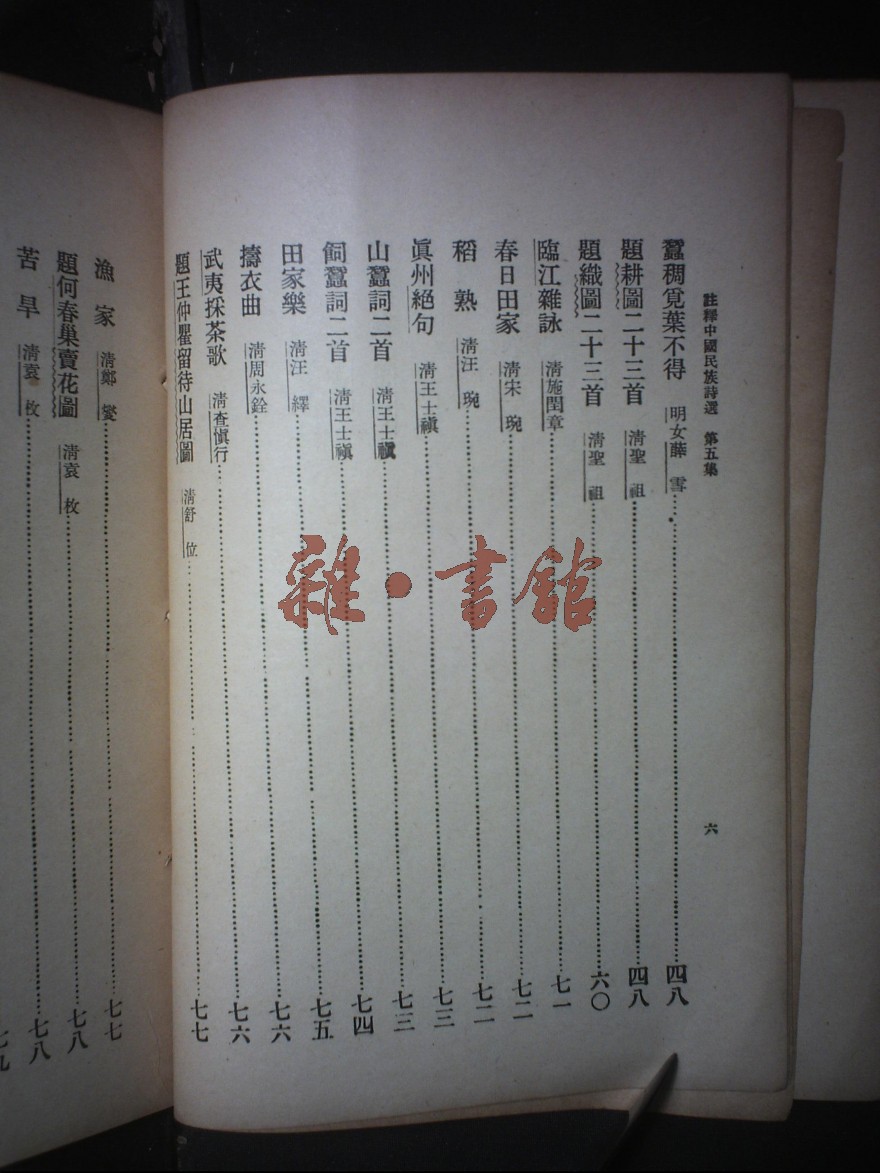 註釋中國民族詩選 第五集
六
蠶稠覓葉不得 明女薛雪 四八
題耕圖二十三首 清聖祖 四八
題織圖二十三首 清聖祖 六〇
臨江雜詠 清施閏章 七一
春日田家 清宋琬 七二
稻熟 清汪琬 七二
眞州絕句 清王士禛 七三
山蠶詞二首 清王士禛 七三
飼蠶詞二首 清王士禛 七四
田家樂 清汪繹 七五
擣衣曲 清周永銓 七六
武夷採茶歌 清查愼行 七六
題王仲瞿留待山居圖 清舒位 七七
漁家 清鄭燮 七七
題何春巢賣花圖 清袁枚 七八
苦旱 清袁枚 七八
雜·書館